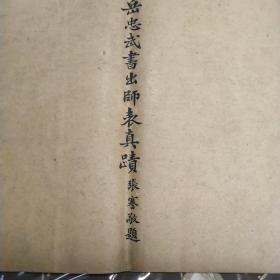 岳忠武書出師表真蹟 張謇敬題